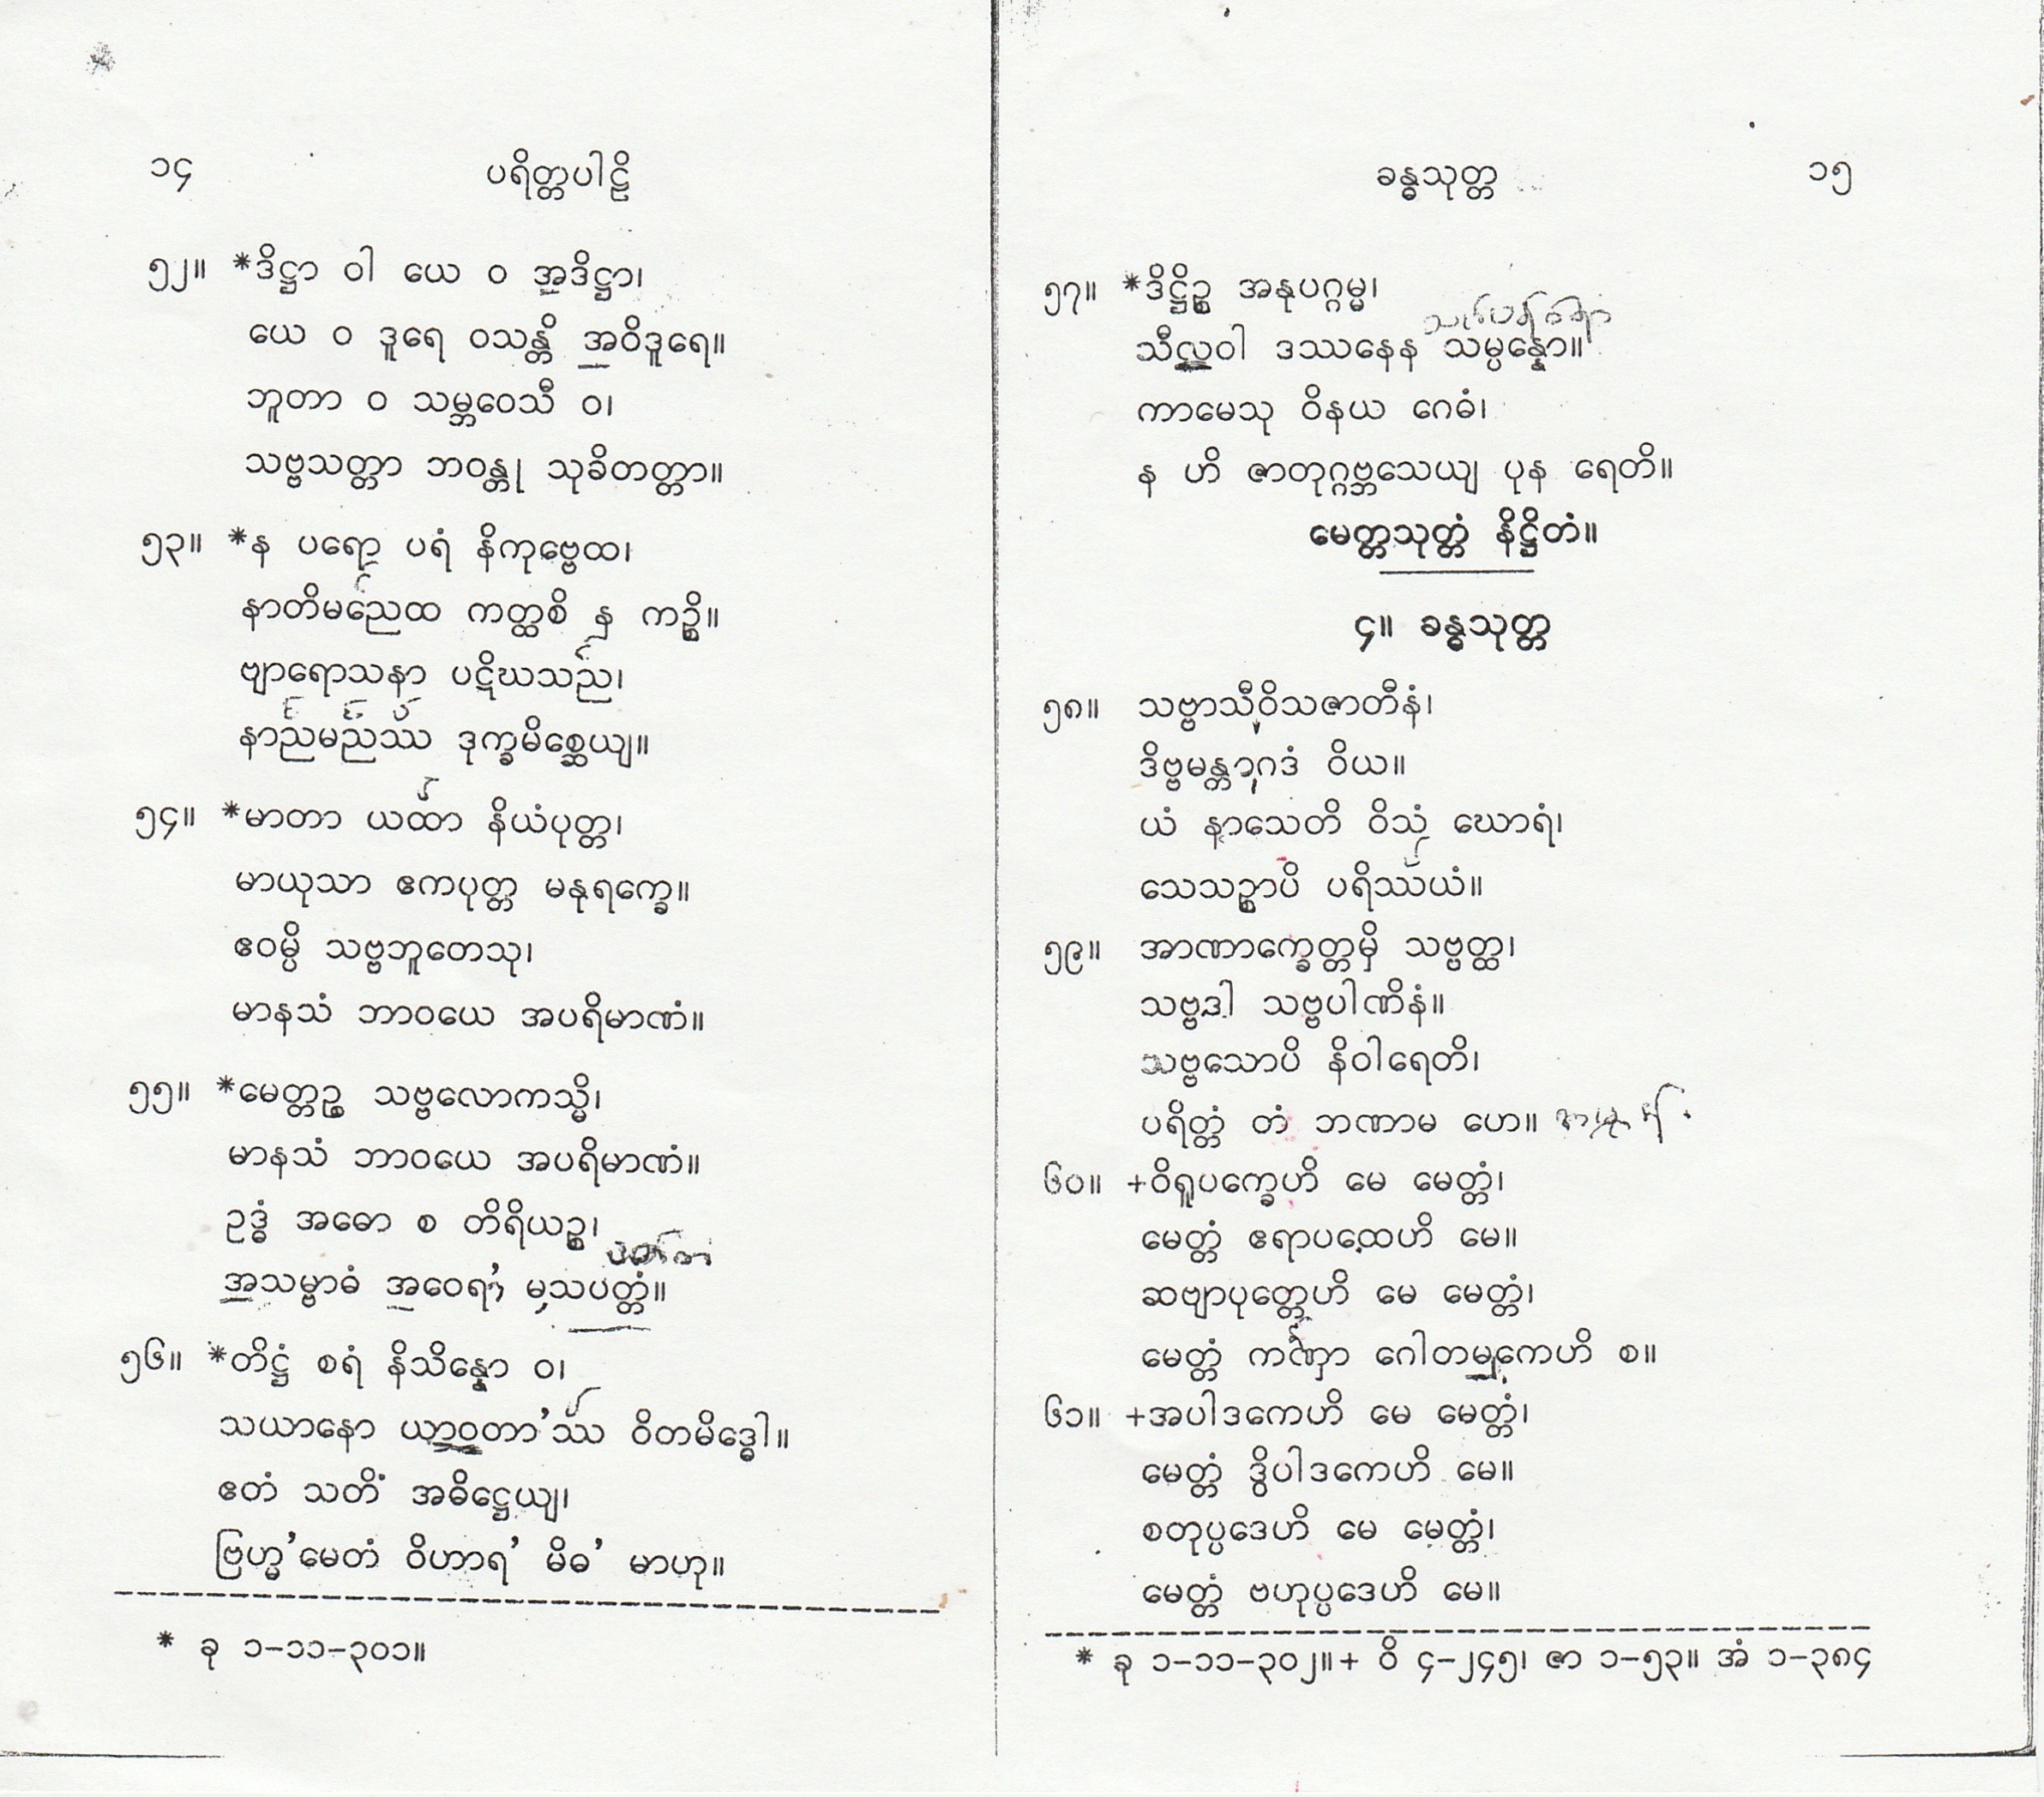 ၁၄ ပရိတ္တပါဠိ
၅၂။ *ဒိဋ္ဌာ ဝါ ယေ ဝ အဒိဋ္ဌာ၊
ယေ ဝ ဒူရေ ဝသန္တိ အဝိဒူရေ။
ဘူတာ ဝ သမ္ဘဝေသီ ဝ၊
သဗ္ဗသတ္တာ ဘဝန္တု သုခိတတ္တာ။
၅၃။ *န ပရော ပရံ နိကုဗ္ဗေထ၊
နာတိမညေထ ကတ္ထစိ န ကဉ္စိ။
ဗျာရောသနာ ပဋိဃသည၊
နာညမညဿ ဒုက္ခမိစ္ဆေယျ။
၅၄။ *မာတာ ယထာ နိယံပုတ္တ၊
မာယုသာ ဧကပုတ္တ မနုရက္ခေ။
ဧဝမ္ပိ သဗ္ဗဘူတေသု၊
မာနသံ ဘာဝယေ အပရိမာဏံ။
၅၅။ *မေတ္တဉ္စ သဗ္ဗလောကသ္မိ၊
မာနသံ ဘာဝယေ အပရိမာဏံ။
ဥဒ္ဓံ အဓော စ တိရိယဉ္စ၊
အသမ္ဗာဓံ အဝေရ' မသပတ္တံ။
၅၆။ *တိဋ္ဌံ စရံ နိသိန္နော ဝ၊
သယာနော ယာဝတာ'ဿ ဝိတမိဒ္ဓေါ။
ဧတံ သတိံ အဓိဋ္ဌေယျ၊
ဗြဟ္မ'မေတံ ဝိဟာရ' မိဓ' မာဟု။
* ခု ၁–၁၁–၃၀၁။
ခန္ဓသုတ္တ ၁၅
၅၇။ *ဒိဋ္ဌိဉ္စ အနုပဂ္ဂမ္မ၊
သီလဝါ ဒဿနေန သမ္ပန္နော။
ကာမေသု ဝိနယ ဂေဓံ၊
န ဟိ ဇာတုဂ္ဂဗ္ဘသေယျ ပုန ရေတိ။
မေတ္တသုတ္တံ နိဋ္ဌိတံ။
၄။ ခန္ဓသုတ္တ
၅၈။ သဗ္ဗာသီဝိသဇာတီနံ၊
ဒိဗ္ဗမန္တာဂဒံ ဝိယ။
ယံ နာသေတိ ဝိသံ ဃောရံ၊
သေသဉ္စာပိ ပရိဿယံ။
၅၉။ အာဏာက္ခေတ္တမှိ သဗ္ဗတ္ထ၊
သဗ္ဗဒါ သဗ္ဗပါဏိနံ။
သဗ္ဗသောပိ နိဝါရေတိ၊
ပရိတ္တံ တံ ဘဏာမ ဟေ။
၆၀။ +ဝိရူပက္ခေဟိ မေ မေတ္တံ၊
မေတ္တံ ဧရာပထေဟိ မေ။
ဆဗျာပုတ္တေဟိ မေ မေတ္တံ၊
မေတ္တံ ကဏှာ ဂေါတမကေဟိ စ။
၆၁။ +အပါဒကေဟိ မေ မေတ္တံ၊
မေတ္တံ ဒွိပါဒကေဟိ မေ။
စတုပ္ပဒေဟိ မေ မေတ္တံ၊
မေတ္တံ ဗဟုပ္ပဒေဟိ မေ။
* ခု ၁–၁၁–၃၀၂။+ ဝိ ၄–၂၄၅၊ ဇာ ၁–၅၃။ အံ ၁–၃၈၄